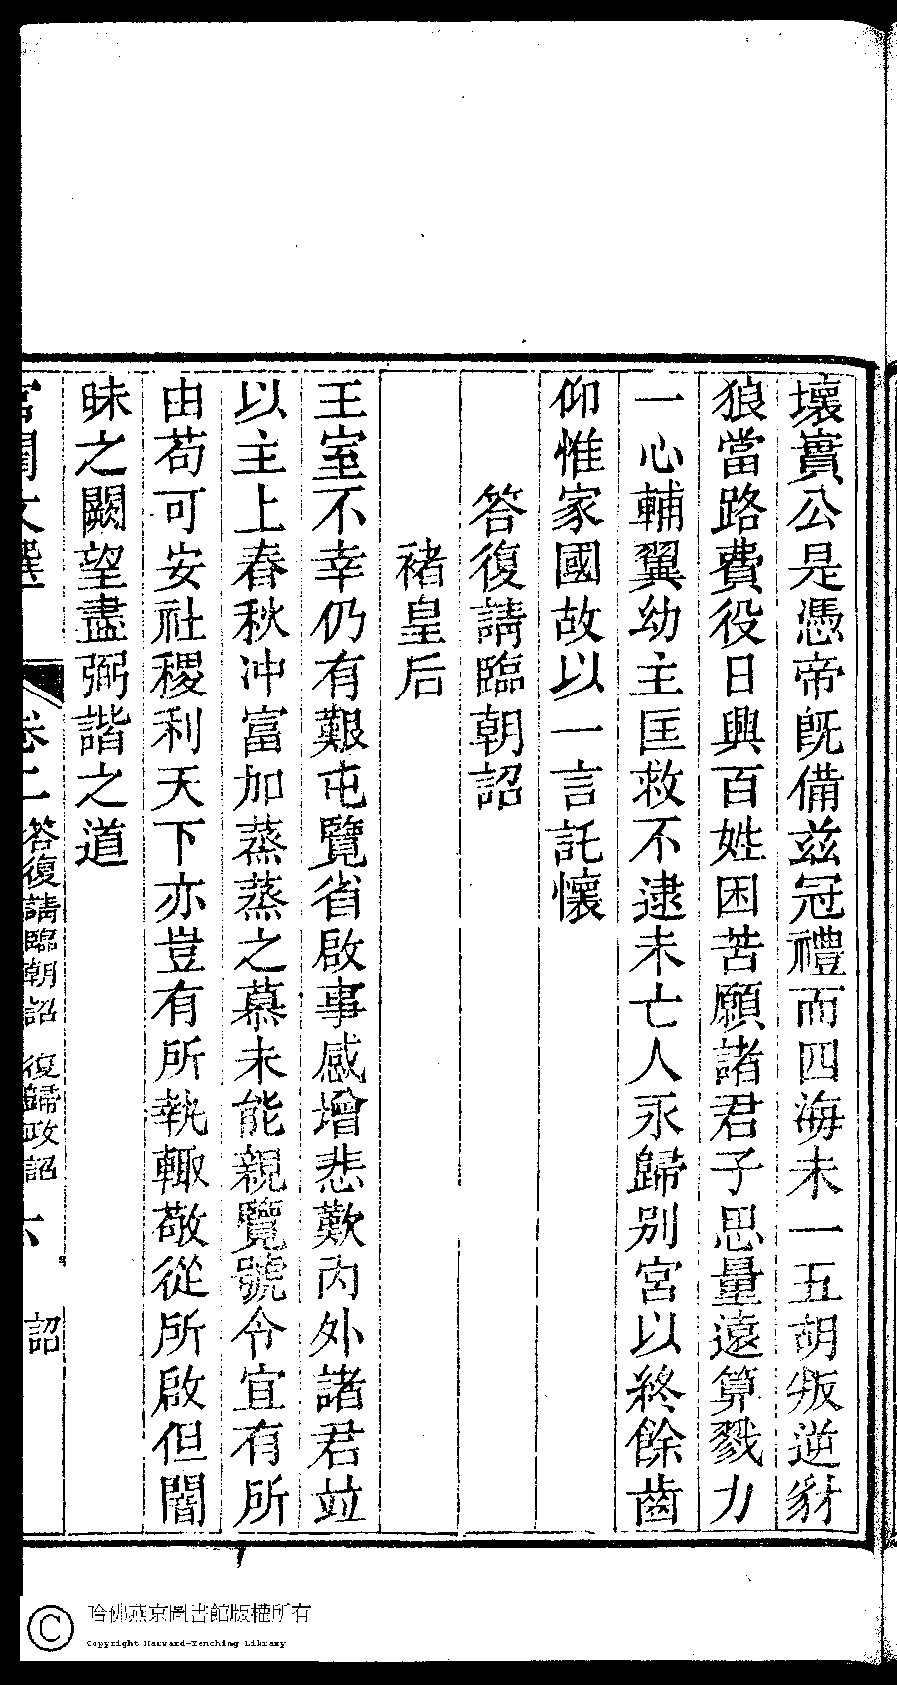 壞實公是憑帝旣備兹冠禮而四海未一五胡叛逆豺
狼當路費役日興百姓困苦願諸君子思量遠算戮力
一心輔翼幼主匡救不逮未亡人永歸别宮以終餘齒
仰惟家國故以一言託懷
答復請臨朝詔
褚皇后
王室不幸仍有艱屯覽省啟事感增悲歎内外諸君竝
以主上春秋冲富加蒸蒸之慕未能親覽號令宜有所
由苟可安社稷利天下亦豈有所執輙敬從所啟但闇
昧之闕望盡弼諧之道
宮閨文選 卷二 答復請臨朝詔 復歸政詔 六 詔
哈佛燕京圖書館版權所有
Copyright Harvard-Yenching Library